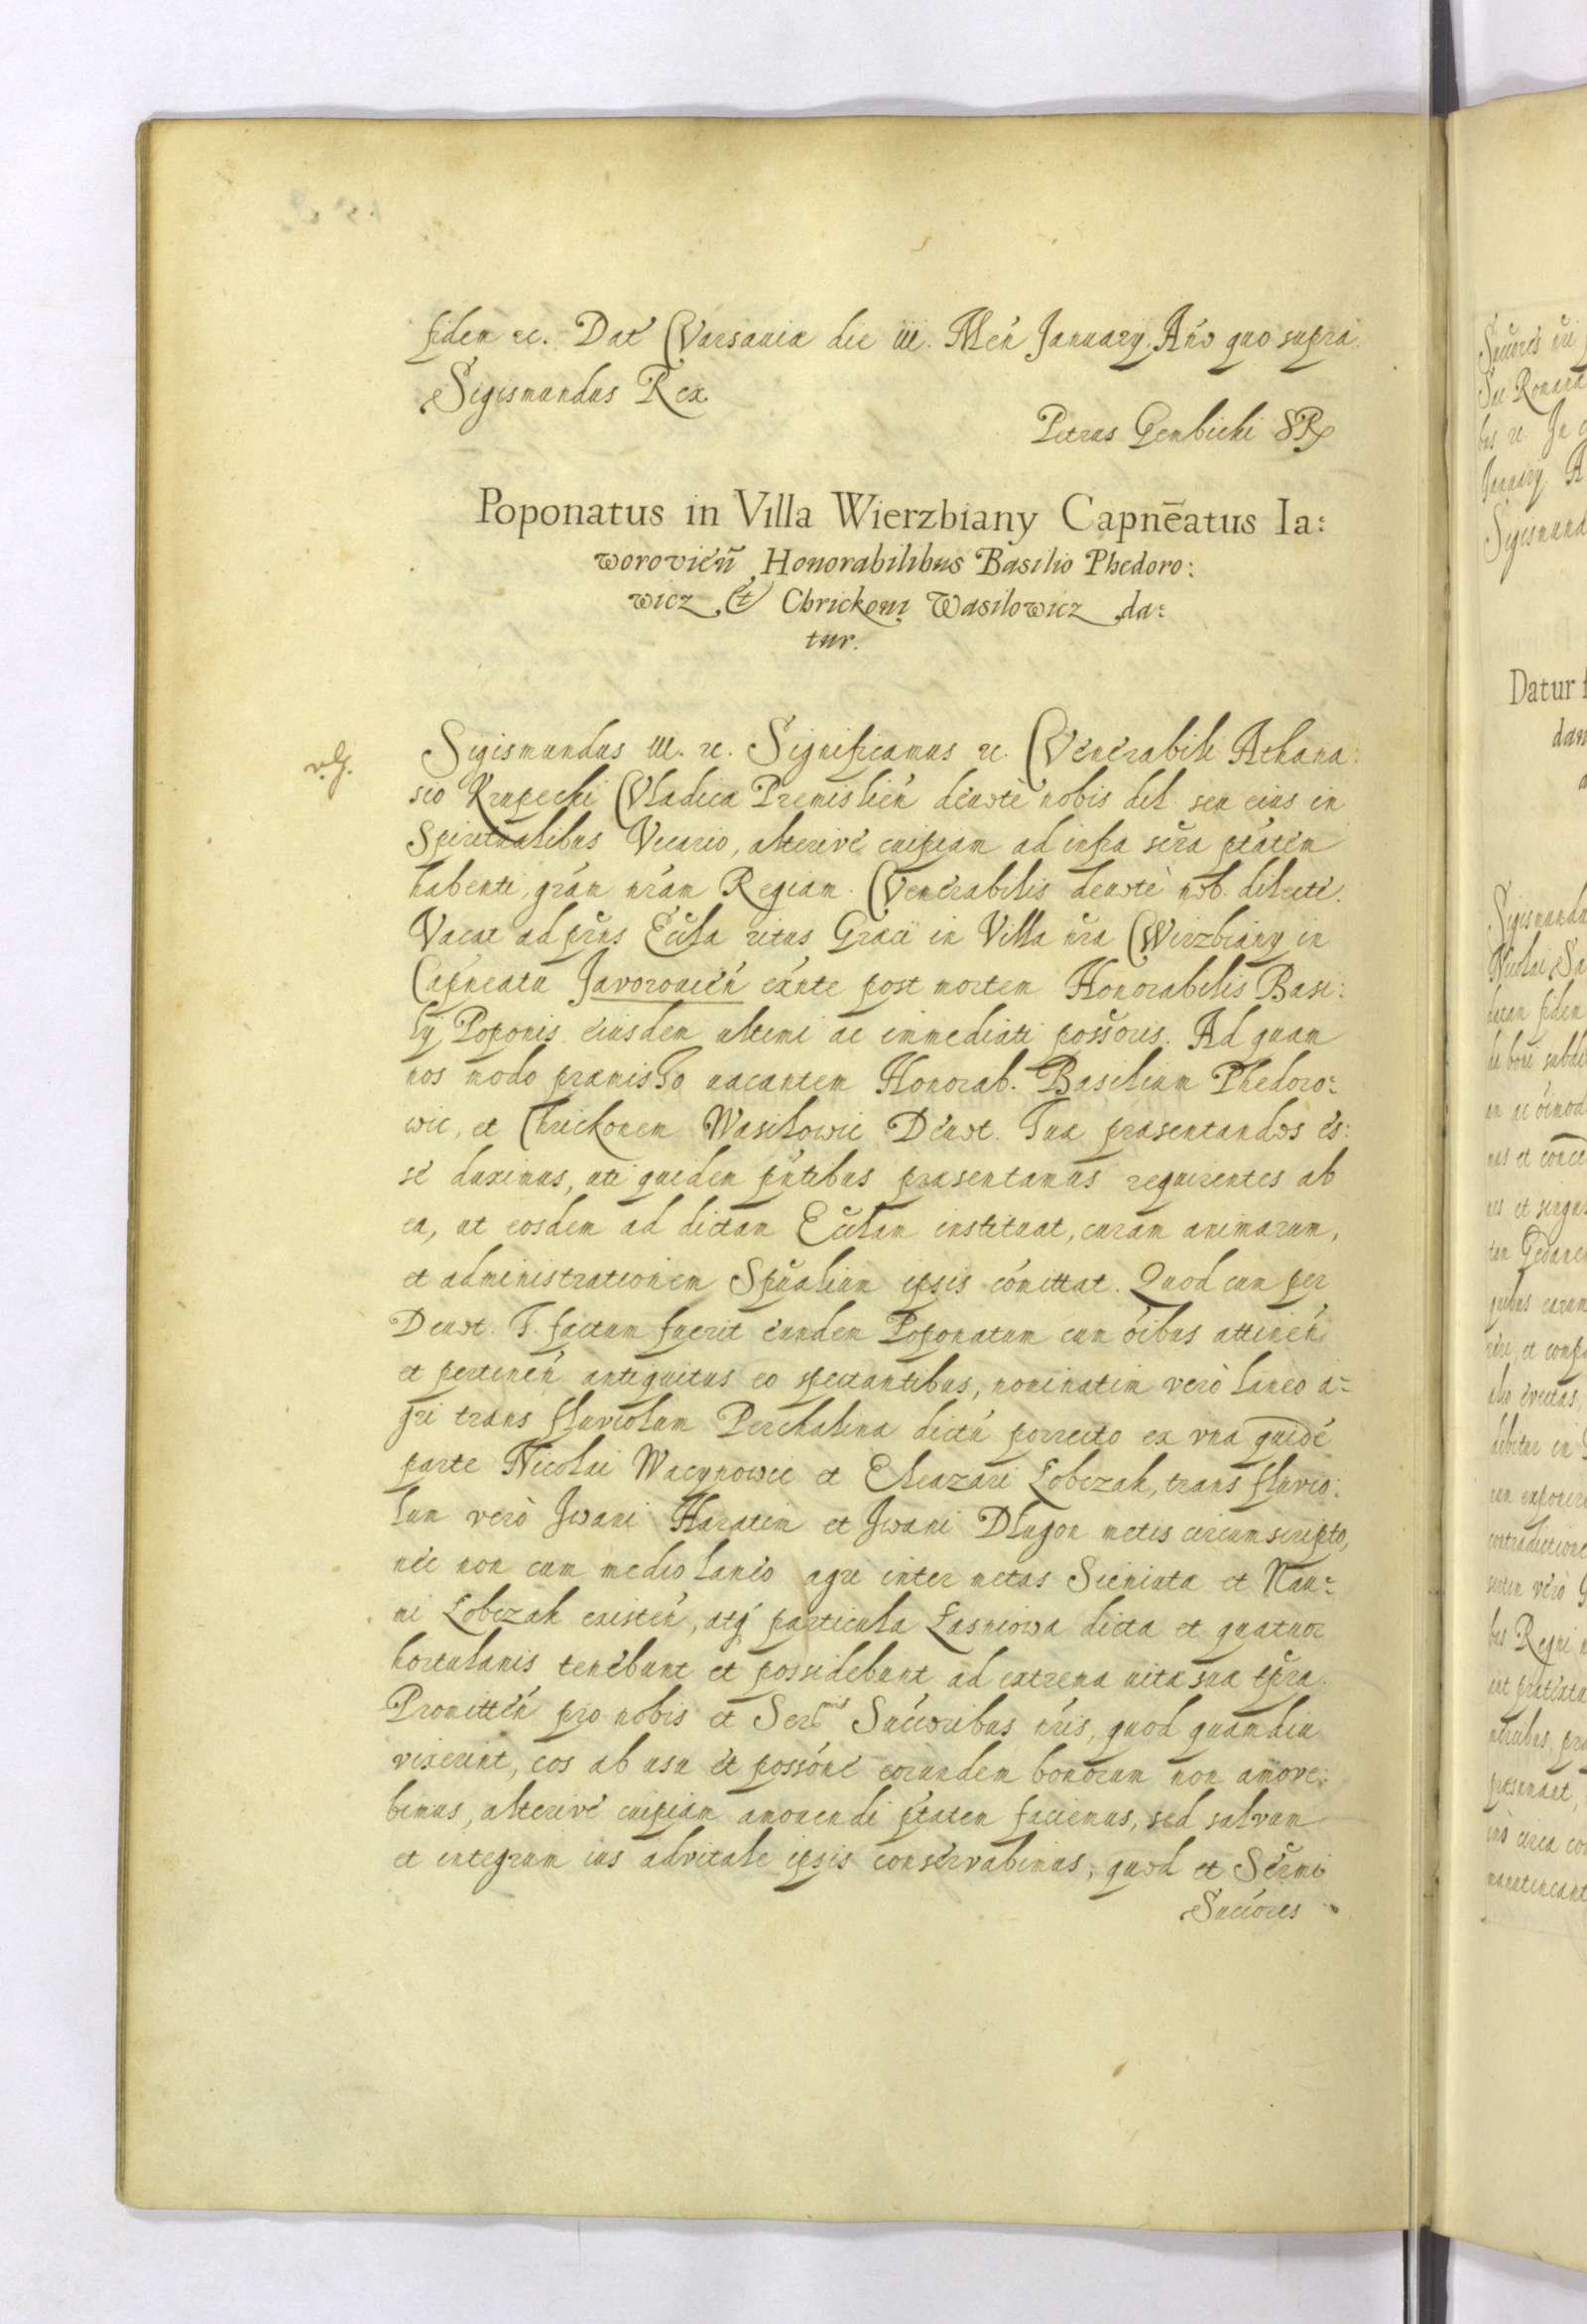 fidem etc. Dat Varsauiæ die iii. Men̄ January. Año quo supra.
Sigismundus Rex
Petrus Gembicki SP
Poponatus in Villa Wierzbiany Capnēatus Ia:
worovień Honorabilibus Basilio Phedoro:
wicz et Chrickoni Wasilowicz da:
tur.
Sigismundus III. etc. Significamus etc. Venerabili Athana:
sio Krupecki Vladicæ Premislień deuote nobis dil. seu eius in
Spiritualibus Vicario, alterive cuipiam ad infra scřa ptátem
habenti, grám nrám Regiam. Venerabilis deuotè nob. dilecte.
Vacat ad prñs Eccła ritus Græci in Villa nřa Wirzbiany in
Capneatu Javorouień exńte post mortem Honorabilis Basi:
ly Poponis eiusdem ultimi ac immediati possoris. Ad quam
nos modo præmisso uacantem Honorab. Basilium Phedoro:
wic, et Chrickonem Wasilowic Deuot. Tuæ præsentandos es:
se duximus, uti quidem pńtibus præsentamus requirentes ab
ea, ut eosdem ad dictam Ecclam instituat, curam animarum,
et administrationem Spűalium ipsis cómittat. Quod cum per
Deuot. T. factum fuerit eundem Poponatum cum óibus attineń
et pertineń antiquitus eo spectantibus, nominatim verò laneo a=
gri trans fluviolum Perchalina dictú porrecto ex vna quidé
parte Nicolai Wacynowic et Eleazari Lobczak, trans fluvio:
lum verò Iwani Haratim et Iwani Dlugon metis circumscripto,
nec non cum medio laneo agri inter metas Sieniuta et Nau=
mi Lobczak existeń, atq́ particula Łasniowa dicta et quatuor
hortulanis tenebunt et possidebunt ad extrema uitæ suæ tṕra.
Promitteń pro nobis et Ser^mis Succoribus nřis, quod quamdiu
vixerint, eos ab usu et possóne eorundem bonorum non amove:
bimus, alterivé cuipiam amouendi ptátem faciemus, sed salvum
et integrum ius advitale ipsis conservabimus, quod et Sermi
Succóres